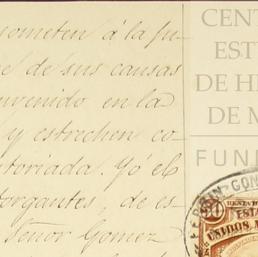 ometen á la ju-
l de sus causas
nvenido en la
y estrechen co
toriada. Yó el
organtes, de es
Señor Gomez
CENT
EST
DE H
DE M
FUN
FERMIN GON
RENTA D
EST
UNIDOS